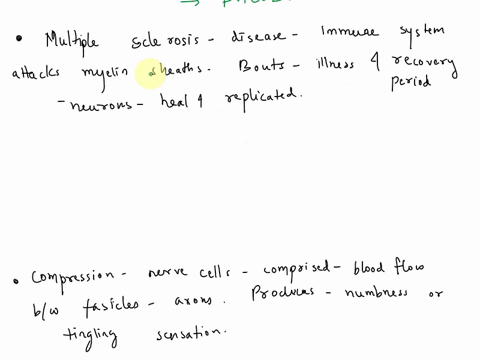 • Multiple sclerosis - disease - Immune system
attacks myelin sheaths. Bouts - illness & recovery
period
- neurons - heal & replicated.
• Compression - nerve cells - comprised - blood flow
b/w fasicles - axons. Produces - numbness or
tingling sensation.